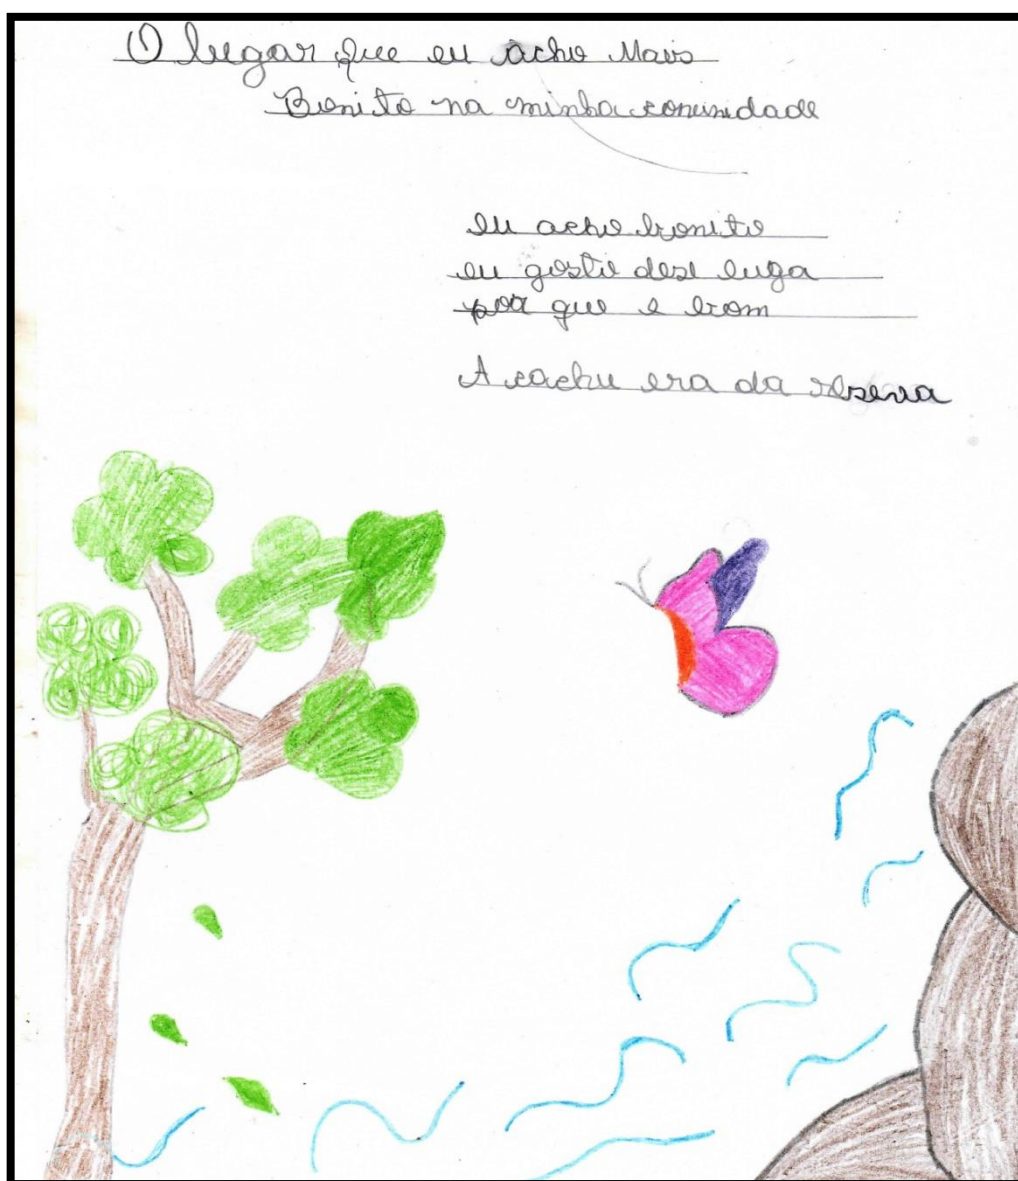 O lugar que eu acho Mais
Bonito na minha comunidade
eu acho bonito
eu gosto dese luga
por que e bom
A cachu era da reserva